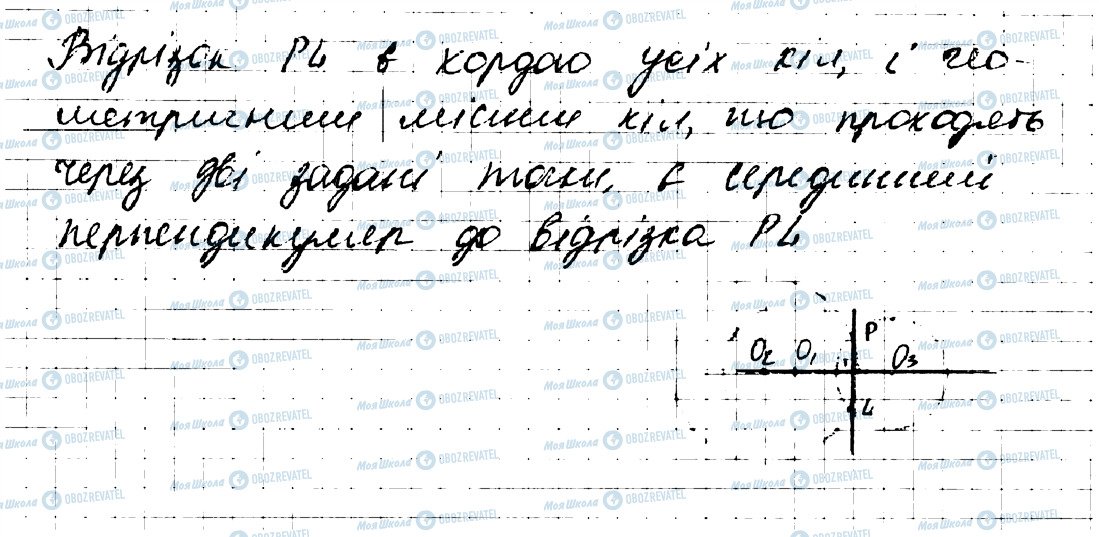 Відрізок PL є хордою усіх кіл, і гео-
метричним місцем кіл, що проходять
через дві задані точки, є серединний
перпендикуляр до відрізка PL
P
O₂ O₁ O₃
L
МояШкола OBOZREVATEL